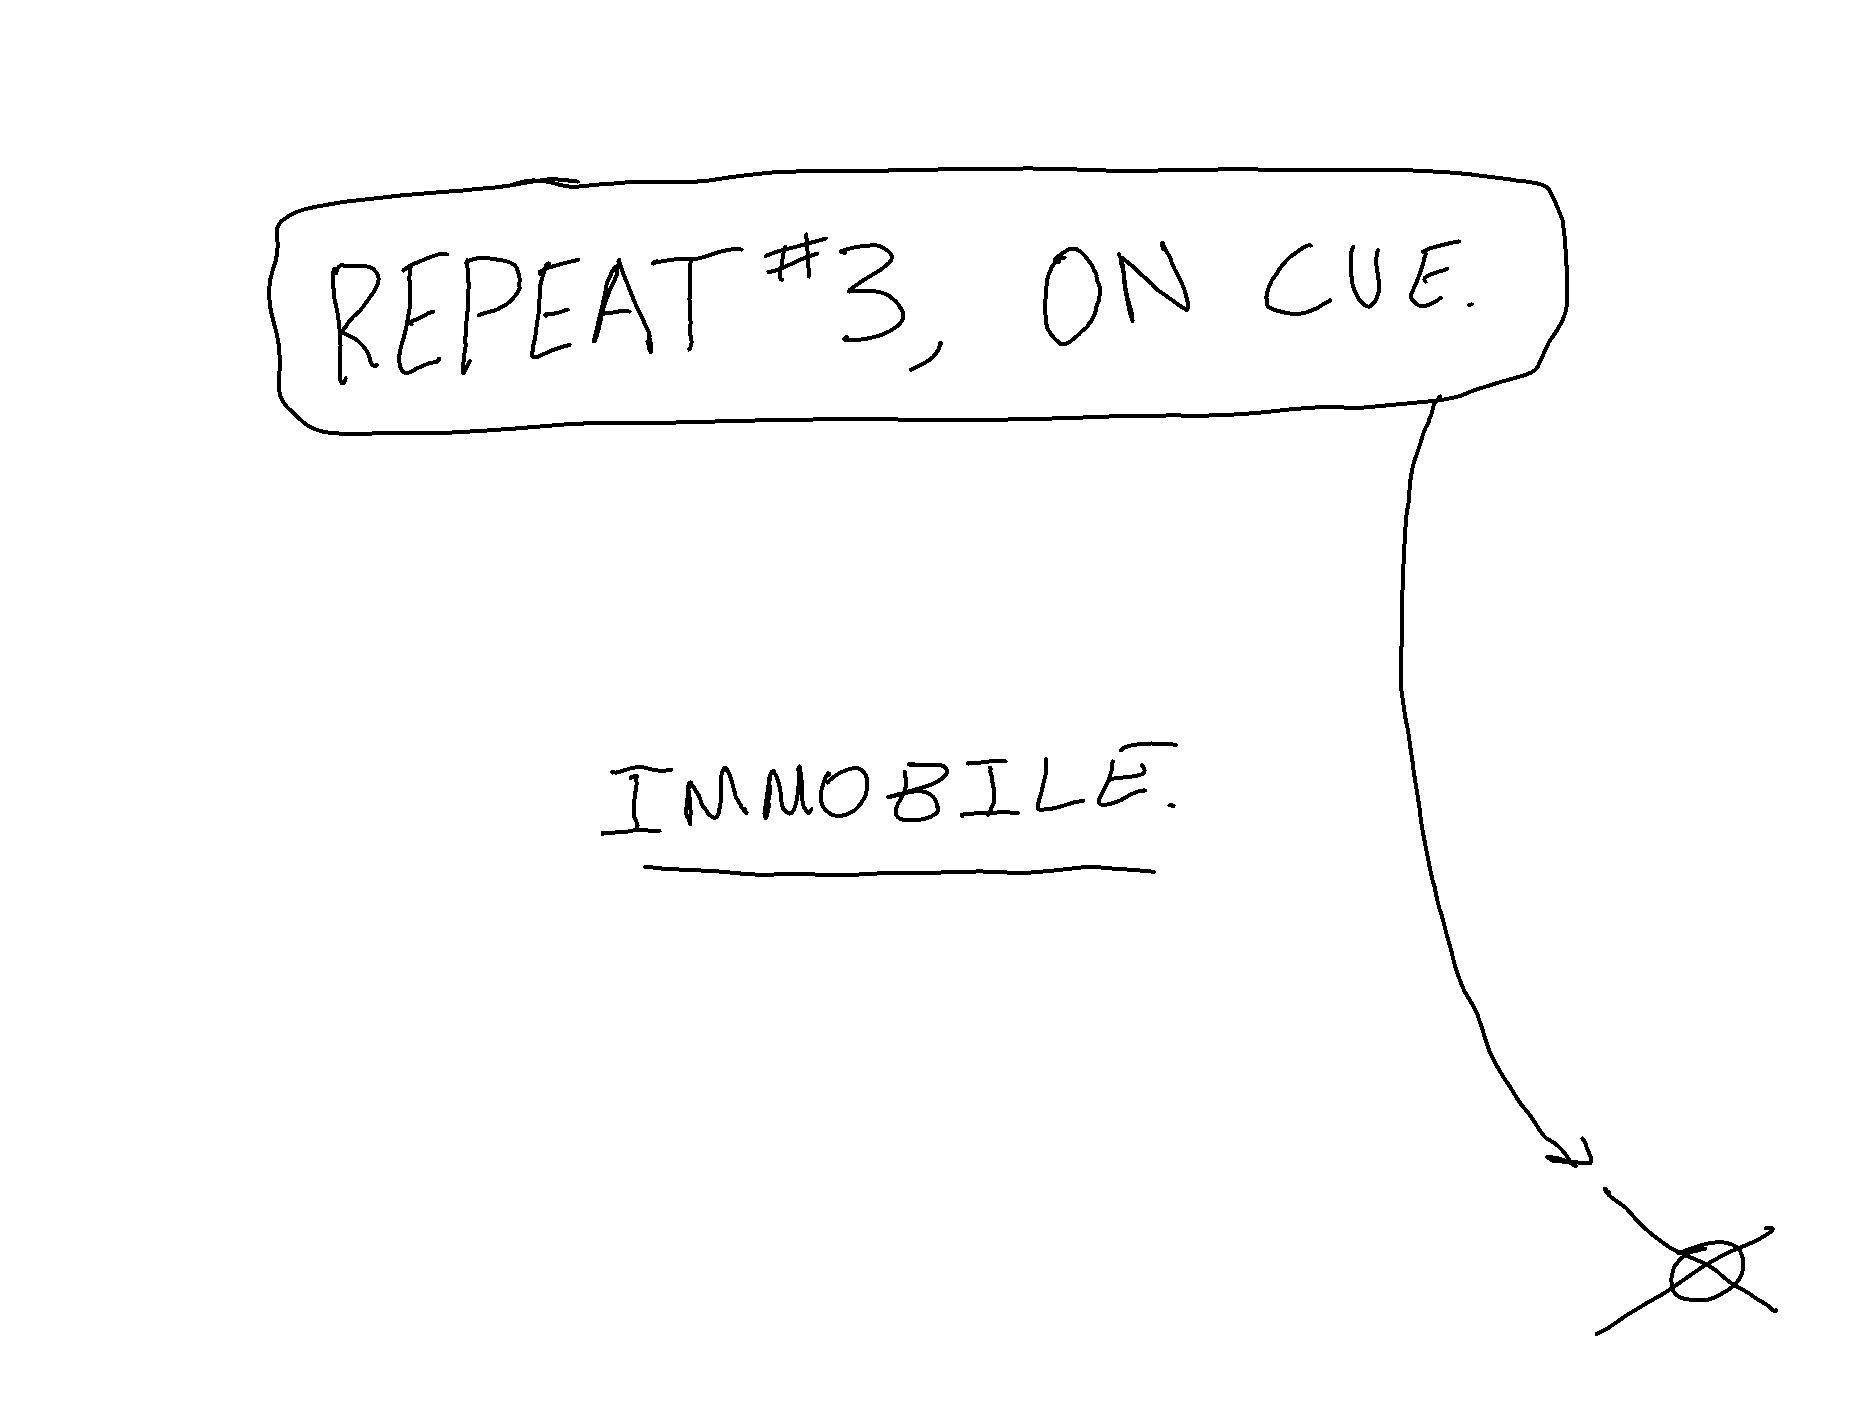 REPEAT #3, ON CUE.
IMMOBILE.